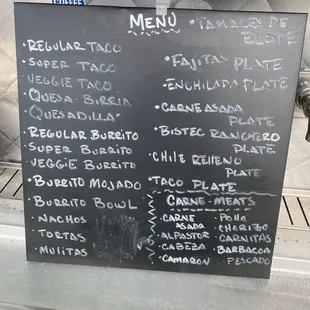 MENU
• REGULAR TACO
• SUPER TACO
• VEGGIE TACO
• QUESA-BIRRIA
QUESADILLA
• REGULAR BURRITO
• SUPER BURRITO
• VEGGIE BURRITO
• BURRITO MOJADO
• BURRITO BOWL
• NACHOS
• TORTAS
• MULITAS
• TAMALES DE
ELOTE
• FAJITAS PLATE
• ENCHILADA PLATE
• CARNE ASADA
PLATE
• BISTEC RANCHERO
PLATE
• CHILE RELLENO
PLATE
• TACO PLATE
CARNE - MEATS
• CARNE
ASADA
• ALPASTOR
• CABEZA
• CAMARON
• POLLO
• CHORIZO
• CARNITAS
• BARBACOA
• PESCADO